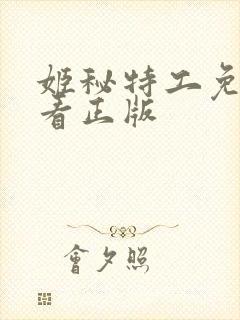 姬秘特工免
看正版
會夕照